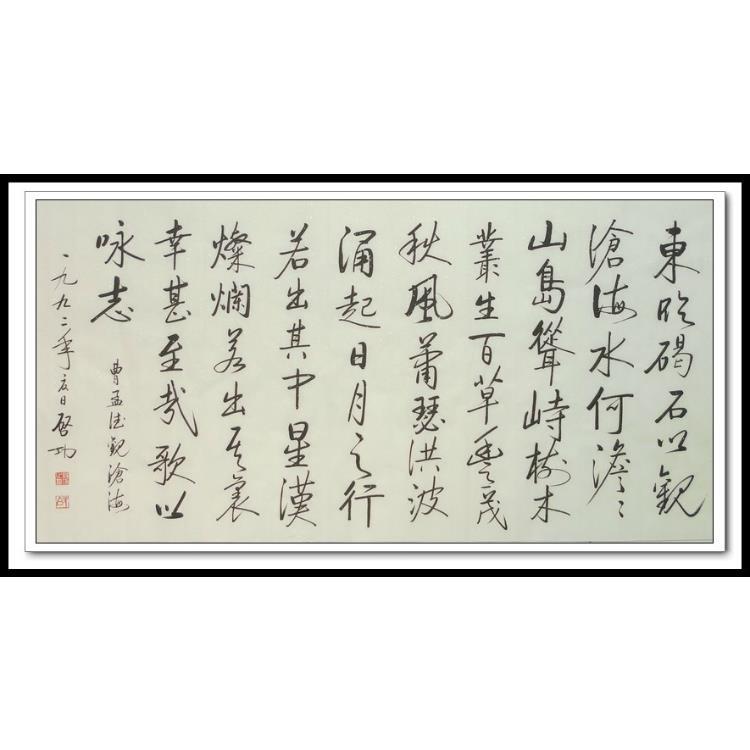 東臨碣石以觀
滄海水何澹〻
山島聳峙樹木
叢生百草豐茂
秋風蕭瑟洪波
涌起日月之行
若出其中星漢
燦爛若出其裏
幸甚至哉歌以
咏志
曹孟德觀滄海
一九九二年夏日啟功